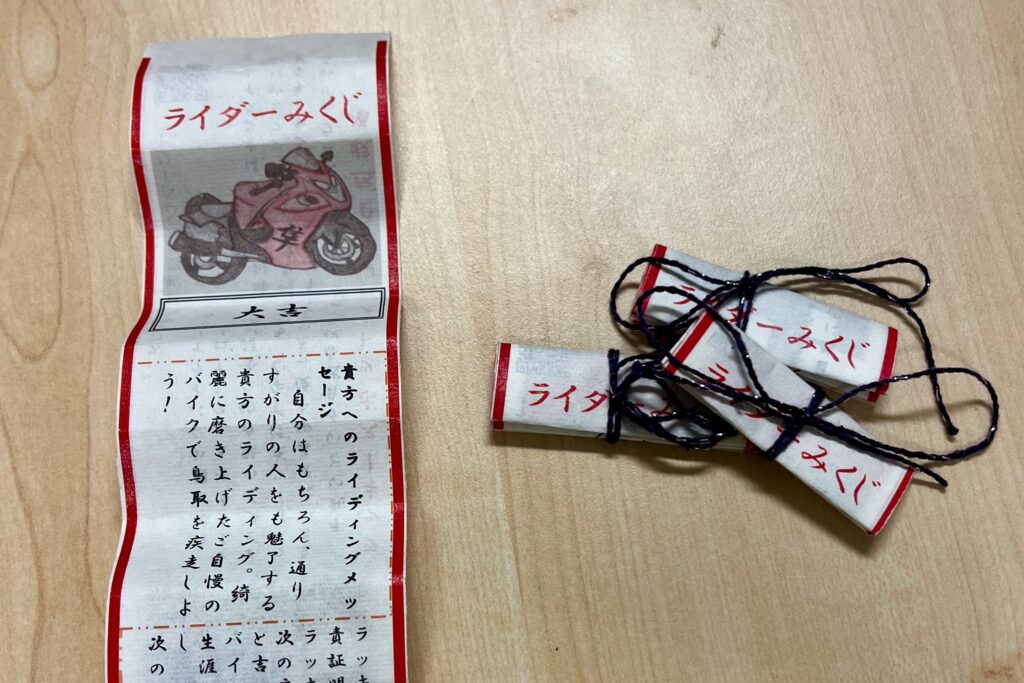 ライダーみくじ
隼
大吉
貴方へのライディングメッ
セージ
自分はもちろん、通り
すがりの人をも魅了する
貴方のライディング。綺
麗に磨き上げたご自慢の
バイクで鳥取を疾走しよ
う!
ラッ
責証明
ラッ
次の
と吉
バイ
生涯
し
次の
ライダーみくじ
ライダーみくじ
ライダーみくじ